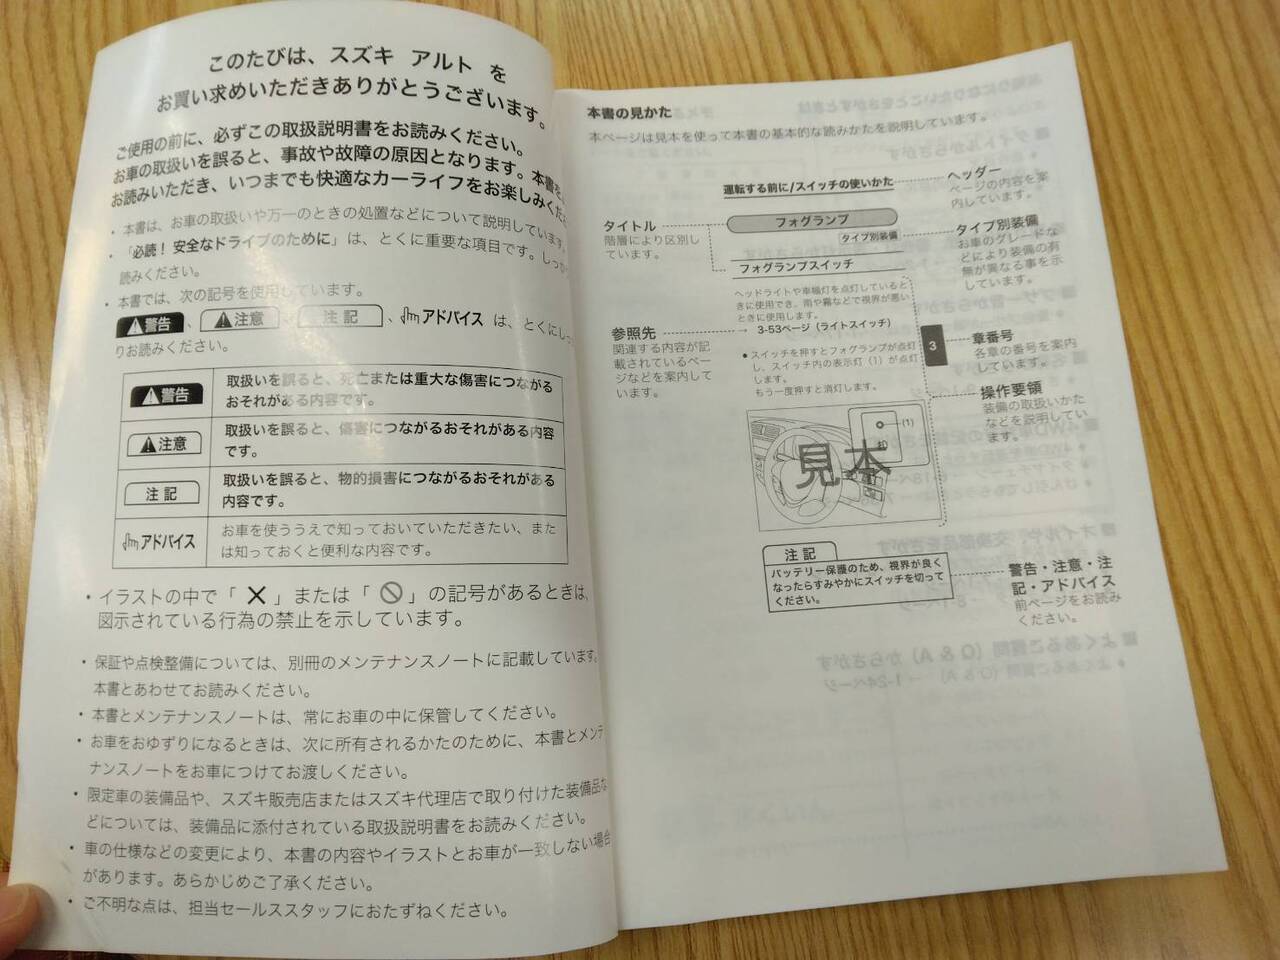 このたびは、スズキ アルト を
お買い求めいただきありがとうございます。
ご使用の前に、必ずこの取扱説明書をお読みください。
お車の取扱いを誤ると、事故や故障の原因となります。本書を
お読みいただき、いつまでも快適なカーライフをお楽しみくだ
・本書は、お車の取扱いや万一のときの処置などについて説明しています。
・「必読！安全なドライブのために」は、とくに重要な項目です。しっか
読みください。
・本書では、次の記号を使用しています。
警告、注意、注記、アドバイス は、とくにしっ
りお読みください。
警告 取扱いを誤ると、死亡または重大な傷害につながる
おそれがある内容です。
注意 取扱いを誤ると、傷害につながるおそれがある内容
です。
注記 取扱いを誤ると、物的損害につながるおそれがある
内容です。
アドバイス お車を使ううえで知っておいていただきたい、また
は知っておくと便利な内容です。
・イラストの中で「 ✕ 」または「 🚫 」の記号があるときは、
図示されている行為の禁止を示しています。
・保証や点検整備については、別冊のメンテナンスノートに記載しています。
本書とあわせてお読みください。
・本書とメンテナンスノートは、常にお車の中に保管してください。
・お車をおゆずりになるときは、次に所有されるかたのために、本書とメンテ
ナンスノートをお車につけてお渡しください。
・限定車の装備品や、スズキ販売店またはスズキ代理店で取り付けた装備品な
どについては、装備品に添付されている取扱説明書をお読みください。
・車の仕様などの変更により、本書の内容やイラストとお車が一致しない場合
があります。あらかじめご了承ください。
・ご不明な点は、担当セールススタッフにおたずねください。
本書の見かた
本ページは見本を使って本書の基本的な読みかたを説明しています。
運転する前に/スイッチの使いかた
ヘッダー
ページの内容を案
内しています。
タイトル
階層により区別し
ています。
フォグランプ
タイプ別装備
フォグランプスイッチ
タイプ別装備
お車のグレードな
どにより装備の有
無が異なる事を示
しています。
ヘッドライトや車幅灯を点灯していると
きに使用でき、雨や霧などで視界が悪い
ときに使用します。
3-53ページ（ライトスイッチ）
参照先
関連する内容が記
載されているペー
ジなどを案内して
います。
●スイッチを押すとフォグランプが点灯
し、スイッチ内の表示灯（1）が点灯
します。
もう一度押すと消灯します。
3
章番号
各章の番号を案内
しています。
操作要領
装備の取扱いかた
などを説明してい
ます。
(1)
見本
注記
バッテリー保護のため、視界が良く
なったらすみやかにスイッチを切って
ください。
警告・注意・注
記・アドバイス
前ページをお読み
ください。